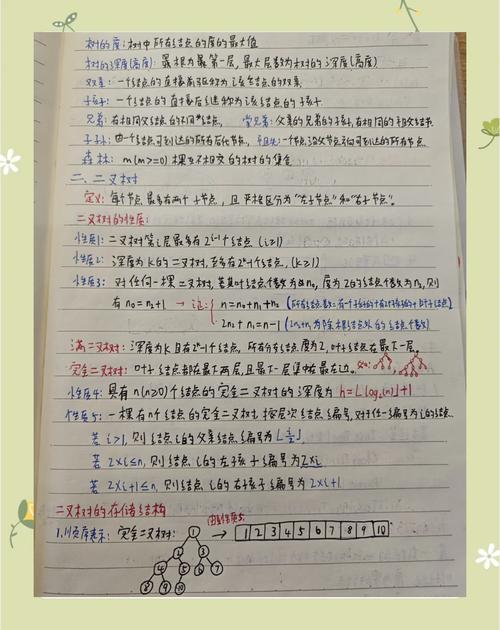 树的度:树中所有结点的度的最大值
树的深度(高度):最根为第一层,最大层数为树的深度(高度)
双亲:一个结点的直接前驱称为该结点的双亲.
孩子:一个结点的直接后继称为该结点的孩子.
兄弟:在相同父结点的不同结点. 堂兄弟:父亲的兄弟的孩子,在相同的祖父结点.
子孙:由一个结点可到达的所有后代节点. 祖先:一个节点沿父节点可到达的所有节点.
森林:m(m>=0)棵互不相交的树的集合
二、二叉树
定义:每个节点最多有两个子节点,且严格区分为"左子节点"和"右子节点".
二叉树的性质:
性质1:二叉树第i层最多有2^(i-1)个结点(i≥1)
性质2:深度为k的二叉树,至多有2^k-1个结点,(k≥1)
性质3:对任何一棵二叉树,若其叶结点个数为n₀,度为2的结点个数为n₂,则
有n₀=n₂+1 → 证:{ n=n₀+n₁+n₂(所有结点数=有一个孩子的+有2个孩子的+叶子结点)
2n₂+n₁=n-1(2n₂+n₁为除根结点外的结点个数)
满二叉树:深度为k且有2^k-1个结点,所有分支结点度为2,叶子结点在最下一层.
完全二叉树:叶子结点都在最下两层,且最下一层集中最左边.
性质4:具有n(n≥0)个结点的完全二叉树的深度为h=⌊log₂(n)⌋+1
性质5:一棵有n个结点的完全二叉树,按层次结点编号,对任一编号为i的结点..
若i>1,则结点i的父亲结点编号为⌊i/2⌋,
若2×i≤n,则结点i的左孩子编号为2×i
若2×i+1≤n,则结点i的右孩子编号为2×i+1
二叉树的存储结构
1.顺序表示:完全二叉树: 1 → 1 2 3 4 5 6 7 8 9 10
2 3
4 5 6 7
8 9 10